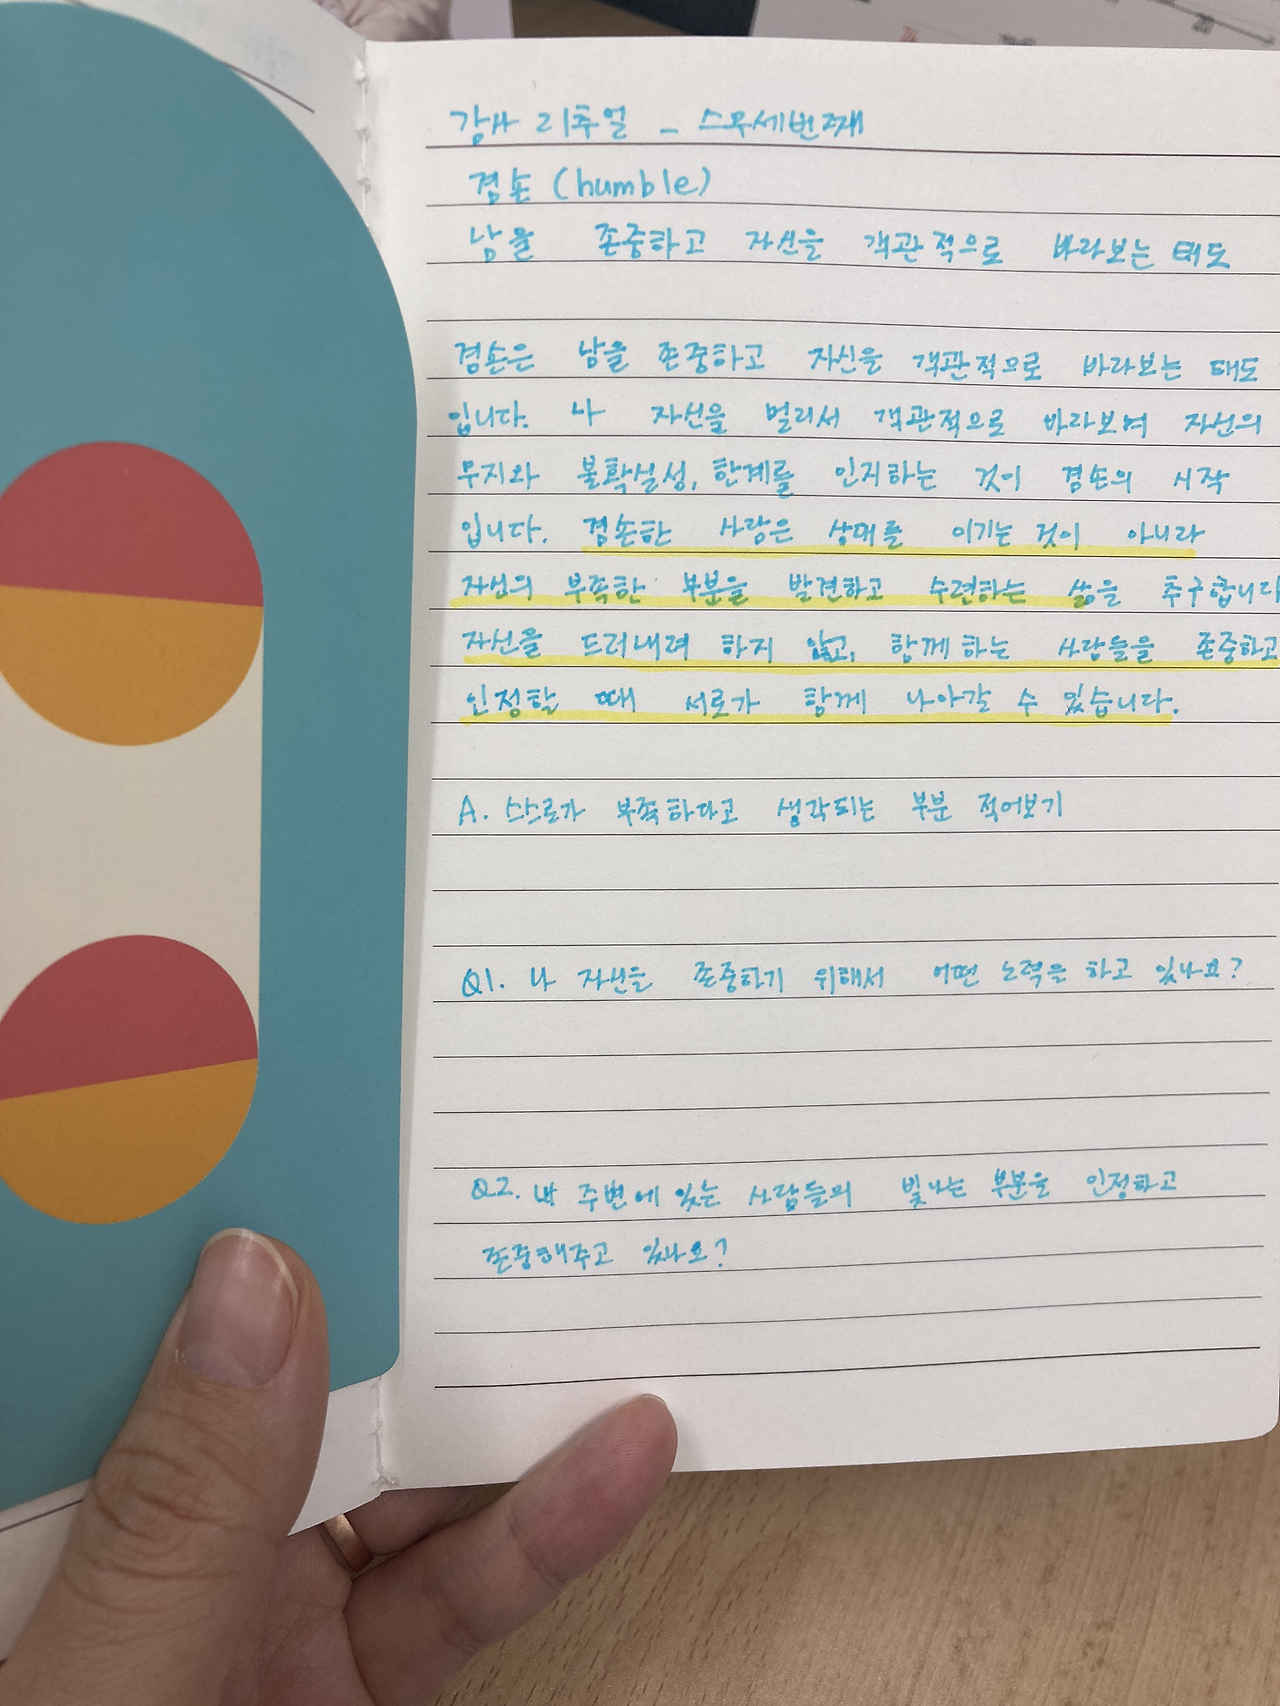 감사 리추얼 - 스무세번째
겸손 (humble)
남을 존중하고 자신을 객관적으로 바라보는 태도
겸손은 남을 존중하고 자신을 객관적으로 바라보는 태도
입니다. 나 자신을 멀리서 객관적으로 바라보며 자신의
무지와 불확실성, 한계를 인지하는 것이 겸손의 시작
입니다. 겸손한 사람은 상대를 이기는 것이 아니라
자신의 부족한 부분을 발견하고 수련하는 삶을 추구합니다
자신을 드러내려 하지 않고, 함께 하는 사람들을 존중하고
인정할 때 서로가 함께 나아갈 수 있습니다.
A. 스스로가 부족하다고 생각되는 부분 적어보기
Q1. 나 자신을 존중하기 위해서 어떤 노력을 하고 있나요?
Q2. 내 주변에 있는 사람들의 빛나는 부분을 인정하고
존중해주고 있나요?